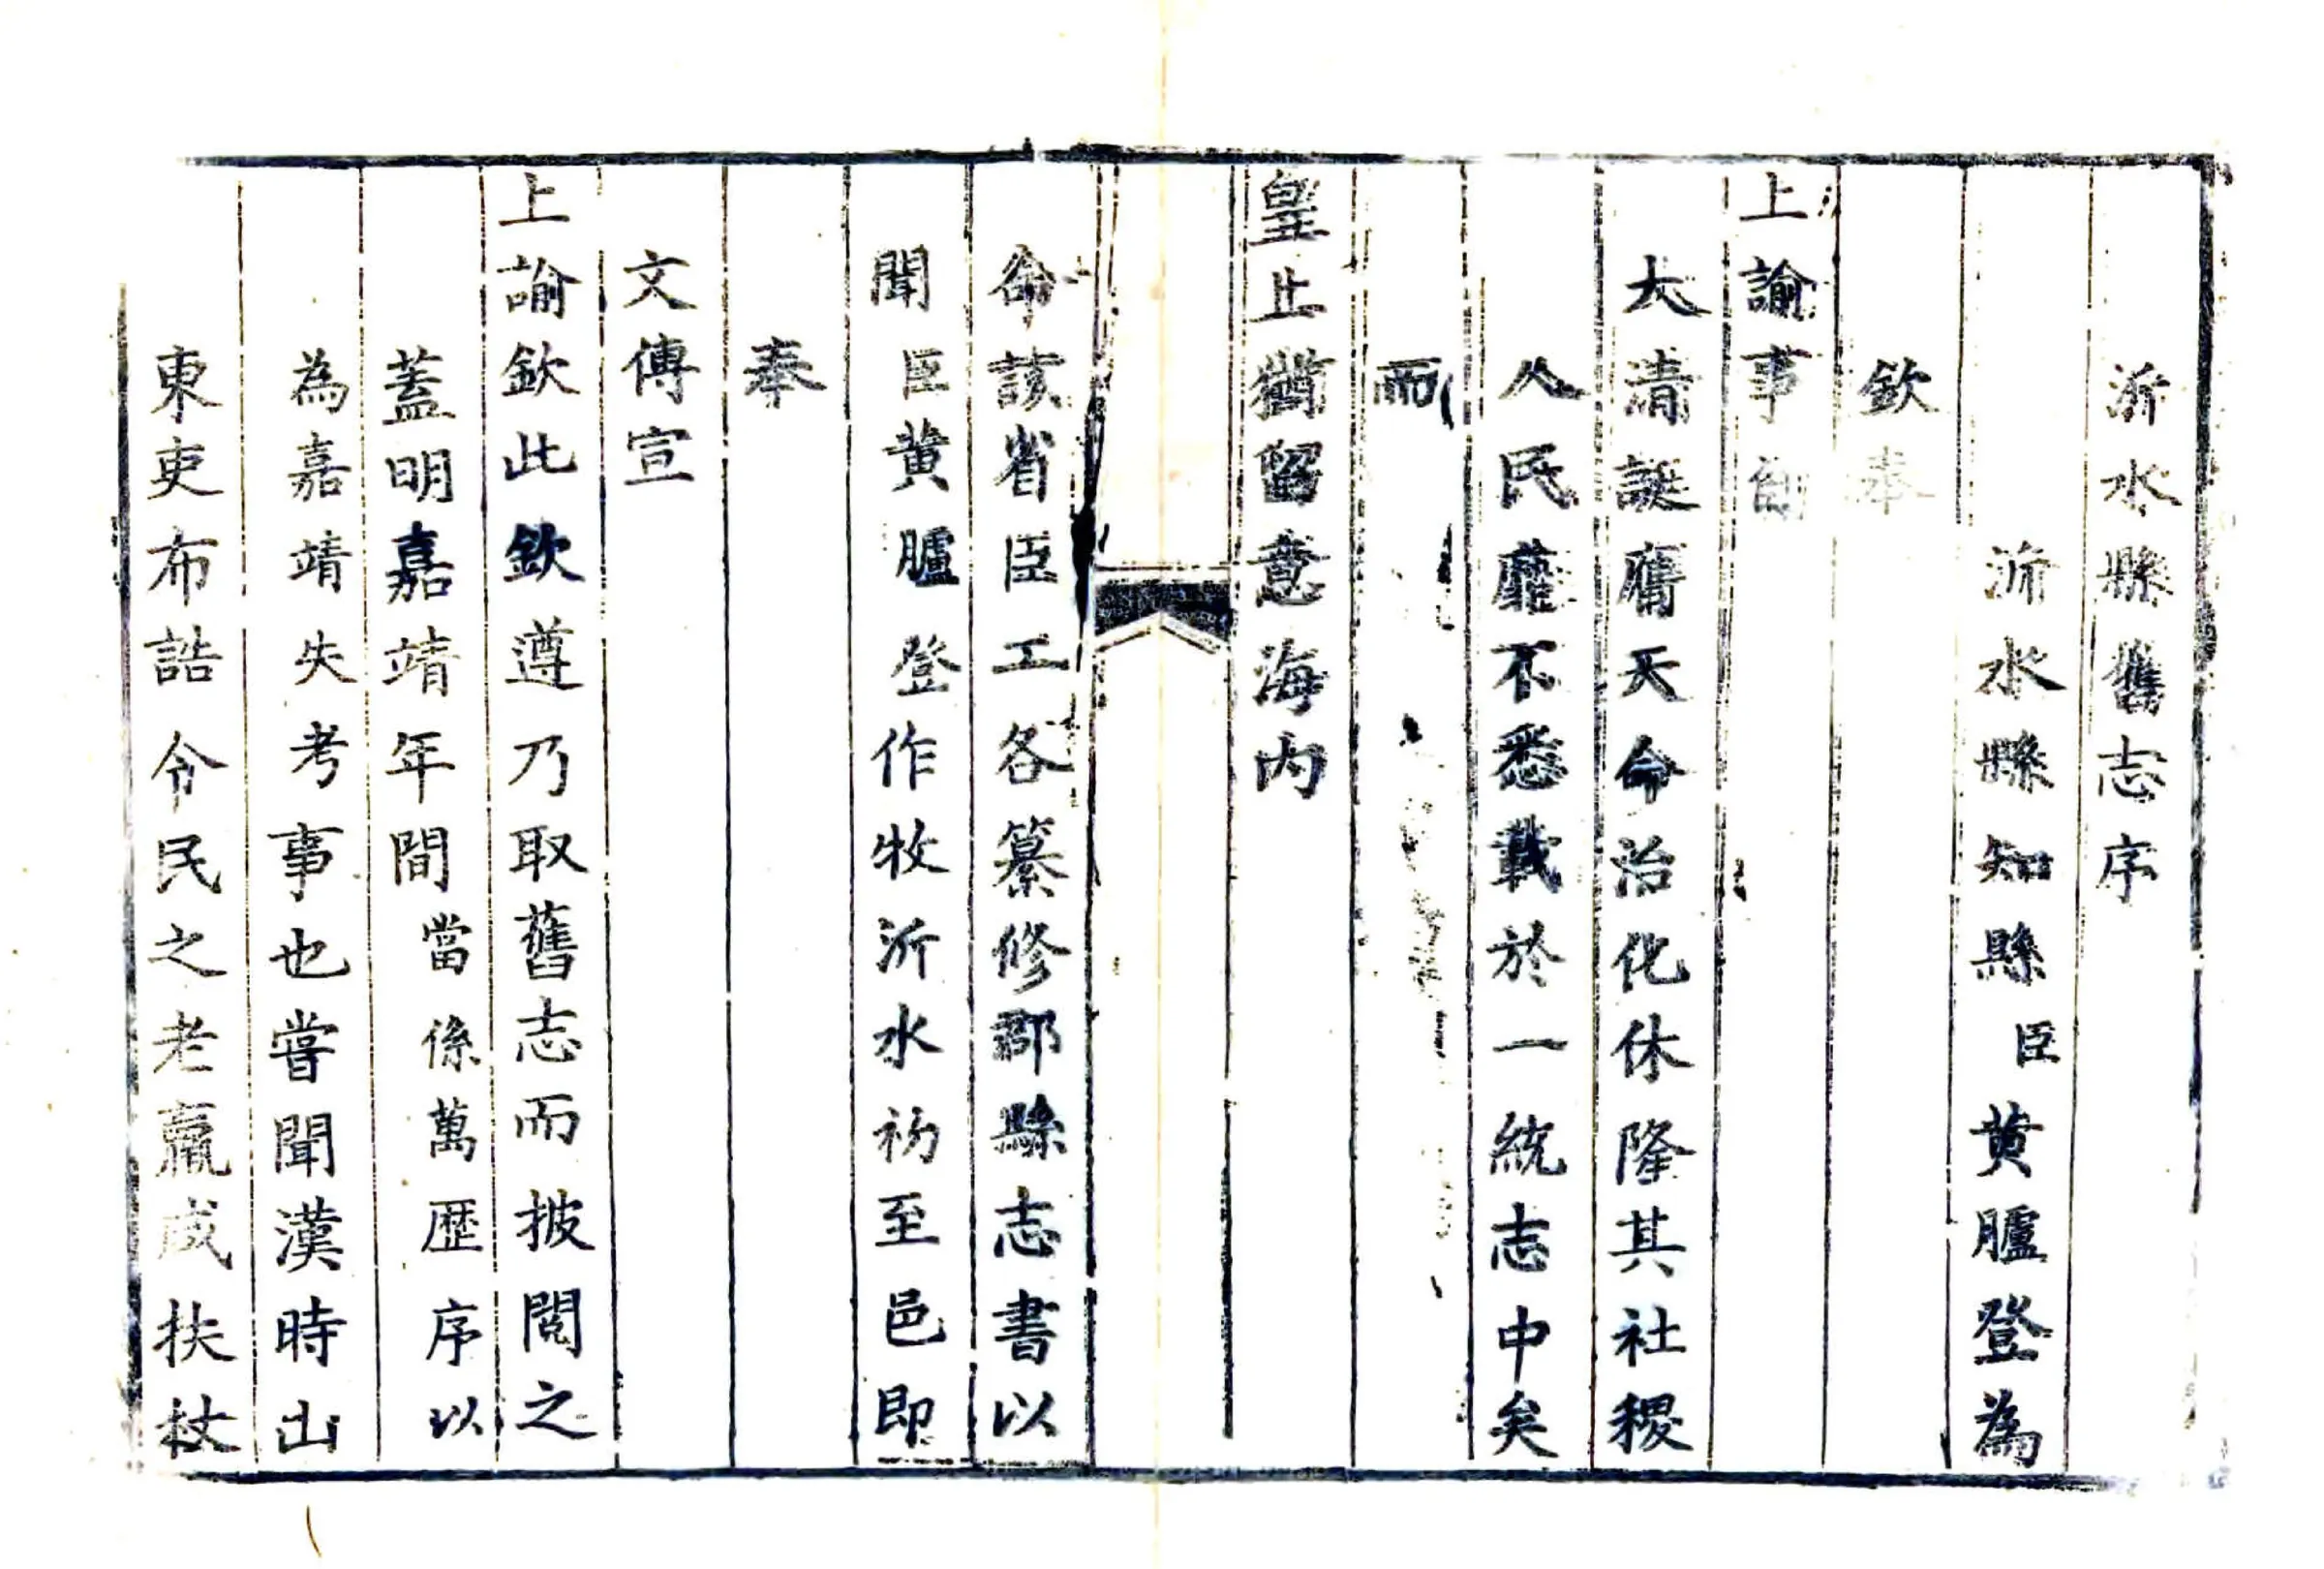 沂水縣舊志序
沂水縣知縣臣黄臚登為
欽奉
上諭事
大清誕膺天命治化休隆其社稷
人民靡不悉載於一統志中矣
而
皇上猶留意海内
命該省臣工各纂修郡縣志書以
聞臣黄臚登作牧沂水初至邑即
奉
文傳宣
上諭欽此欽遵乃取舊志而披閲之
蓋明嘉靖年間當係萬歷序以
為嘉靖失考事也嘗聞漢時山
東吏布誥令民之老羸咸扶杖